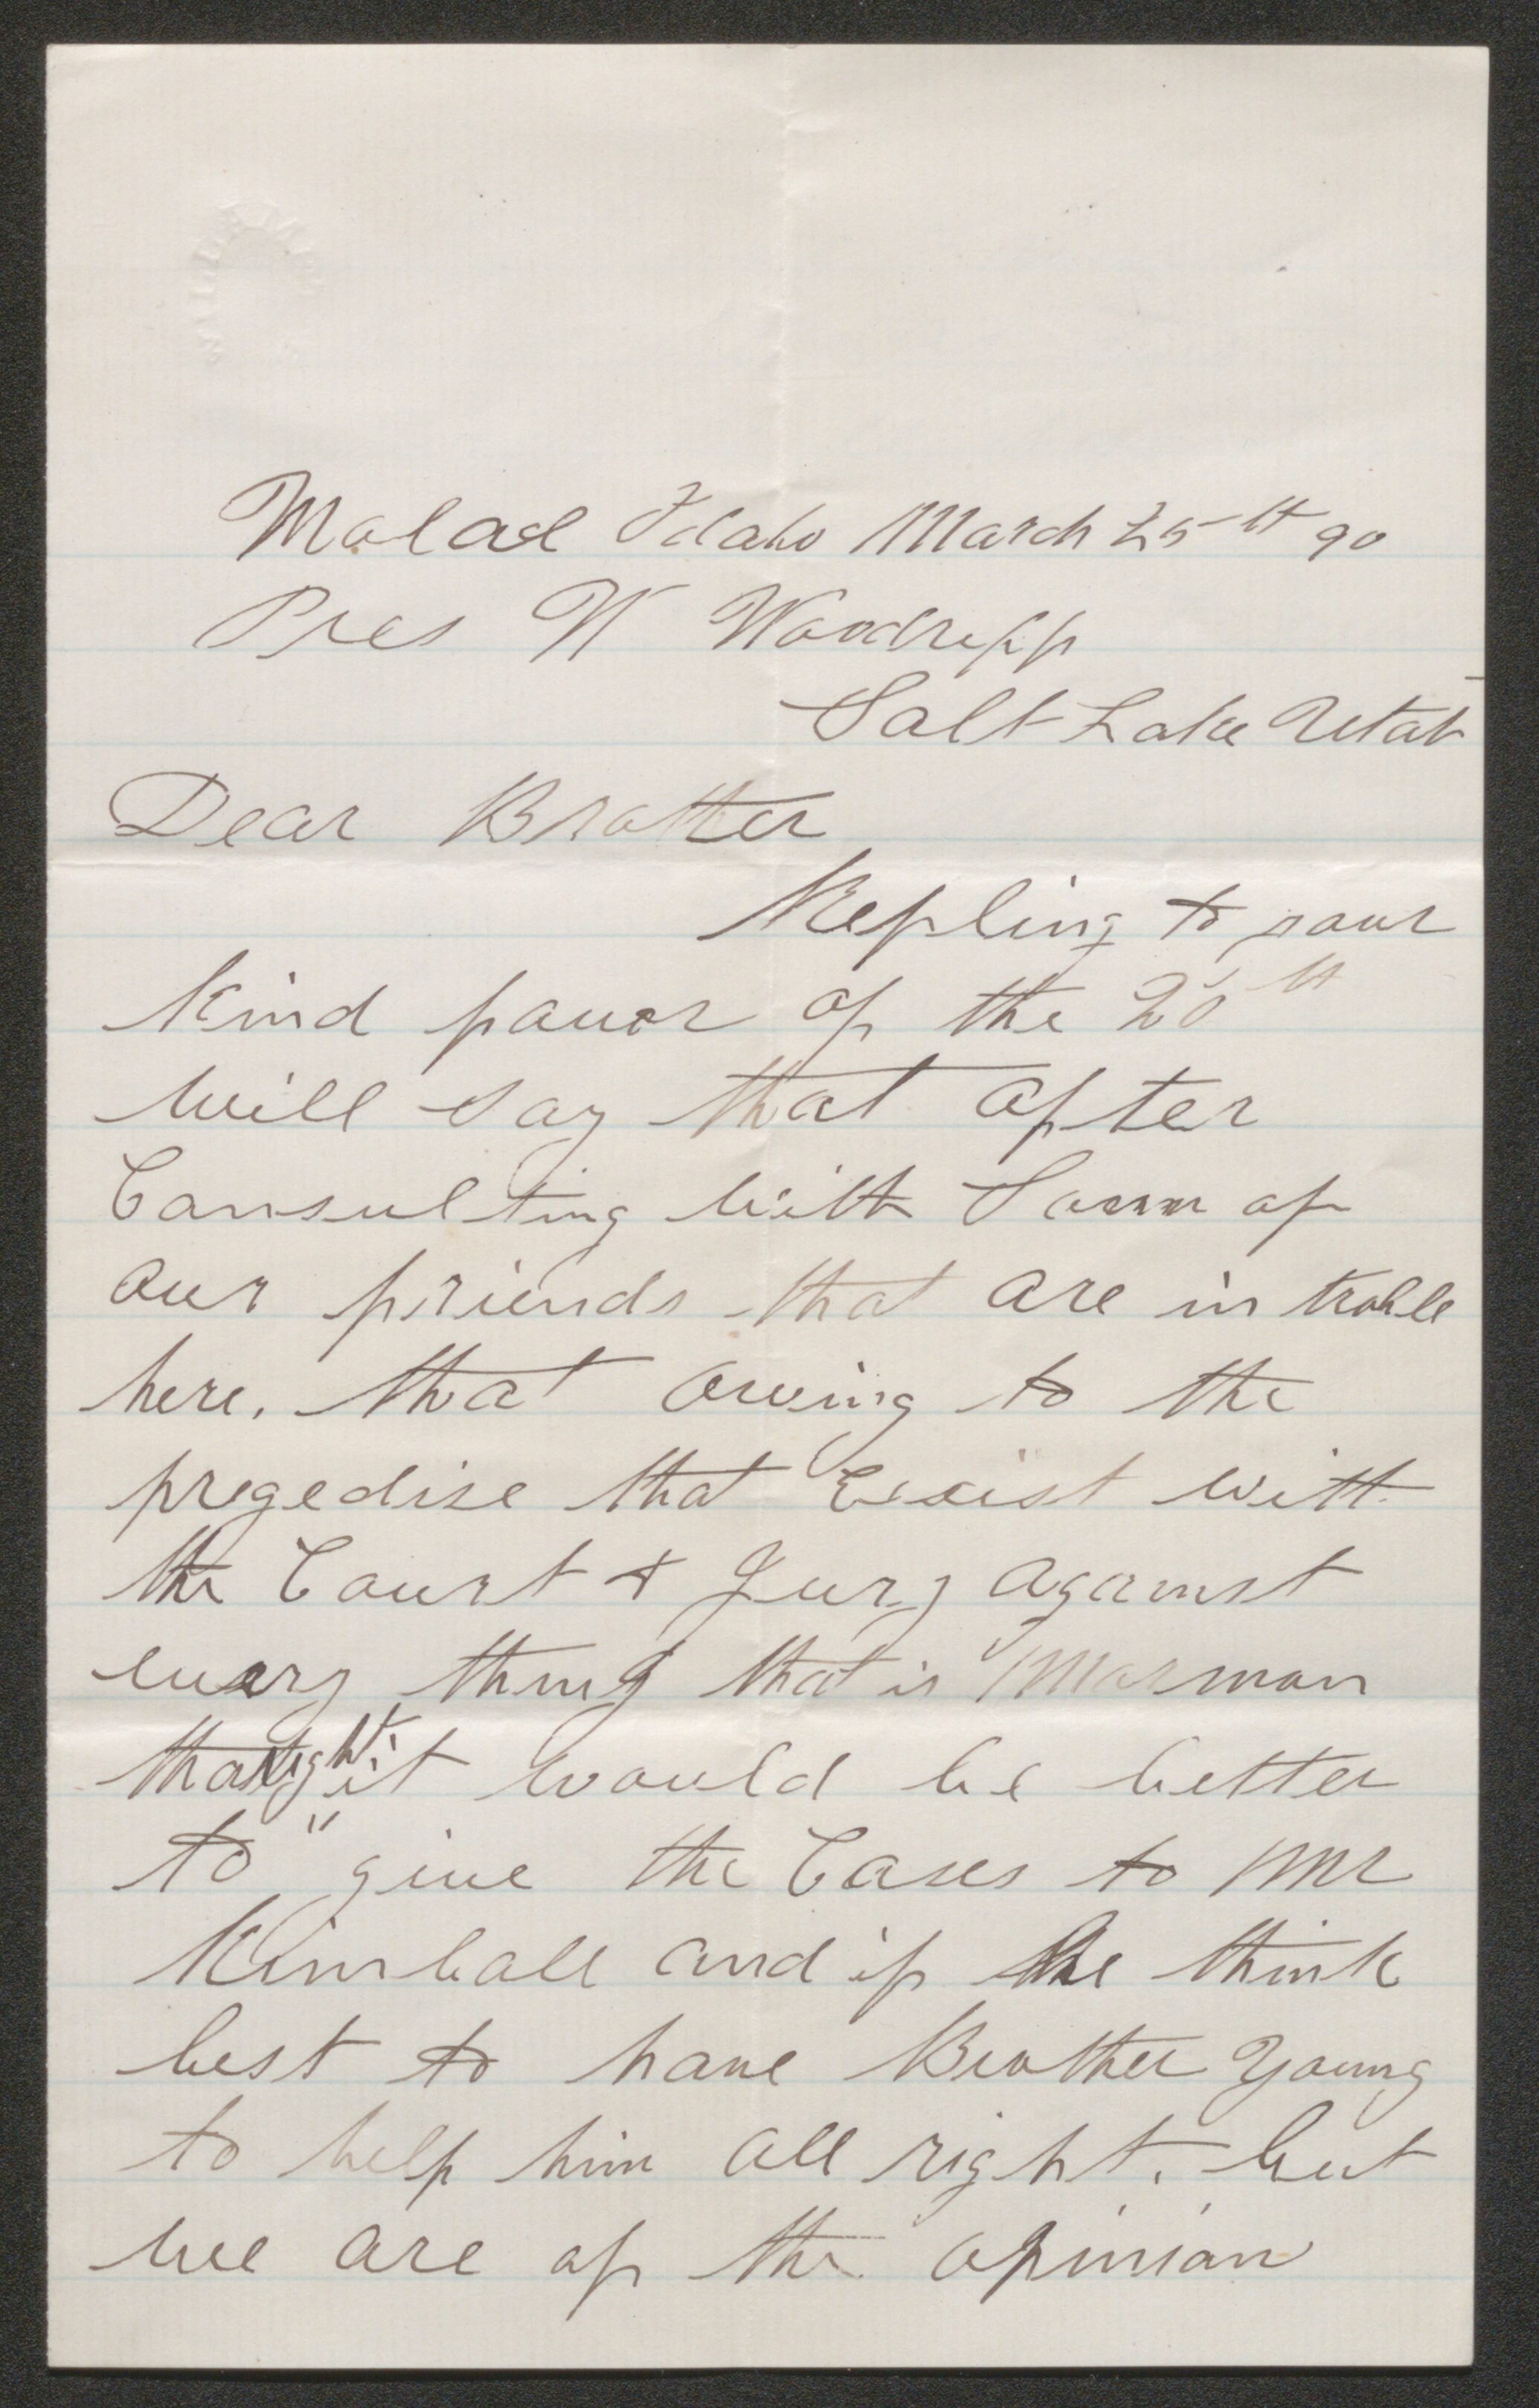 Malad Idaho March 25th 90
Pres W Woodruff
Salt Lake Utah
Dear Brother
Repling to your
kind favor of the 20th
will say that after
Consulting with Some of
our friends that are in troble
here. that owing to the
pregedise that Exist with
the Court & Jury against
every thing that is Mormon
thought it would be better
to " give the Cases to Mr
Kimball and if he think
best to have Brother Young
to help him all right. but
we are of the opinion